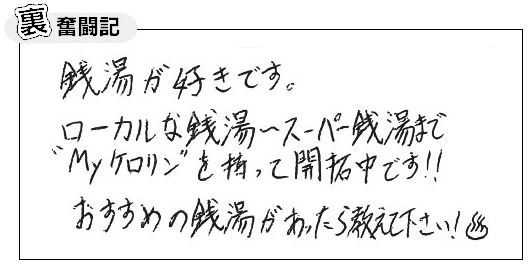 裏 奮闘記
銭湯が好きです。
ローカルな銭湯〜スーパー銭湯まで
"Myケロリン"を持って開拓中です!!
おすすめの銭湯があったら教えて下さい!♨